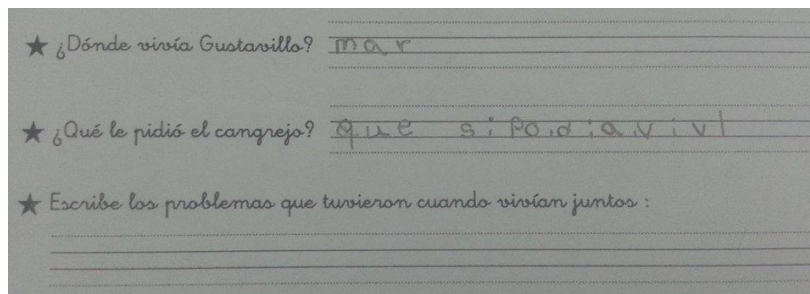 ★ ¿Dónde vivía Gustavillo? mar
★ ¿Qué le pidió el cangrejo? que si podia vivi
★ Escribe los problemas que tuvieron cuando vivían juntos :